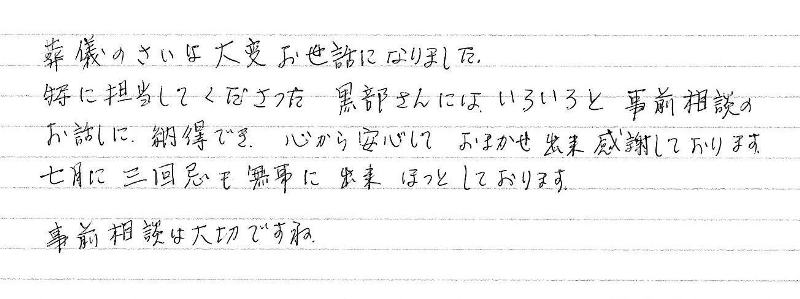 葬儀のさいは大変お世話になりました.
特に担当してくださった 黒部さんには、いろいろと 事前相談の
お話しに 納得でき、心から安心して おまかせ出来 感謝しております.
七月に 三回忌も無事に 出来 ほっとしております.
事前相談は大切ですね.